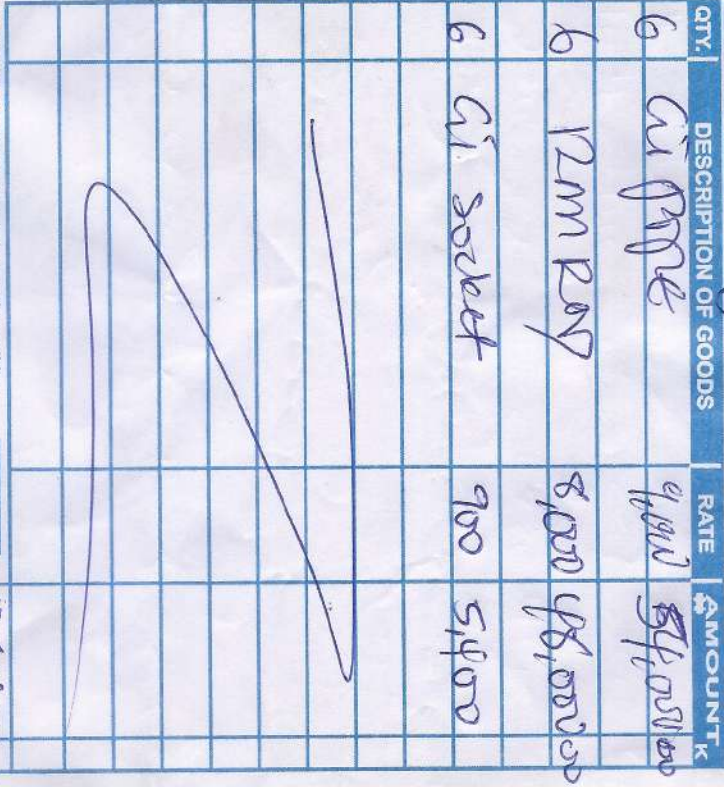 QTY. DESCRIPTION OF GOODS RATE AMOUNT ₦ K
6 Gi PIPE 9,000 54,000 00
6 12mm ROD 8,000 48,000 00
6 Gi Socket 900 5,400